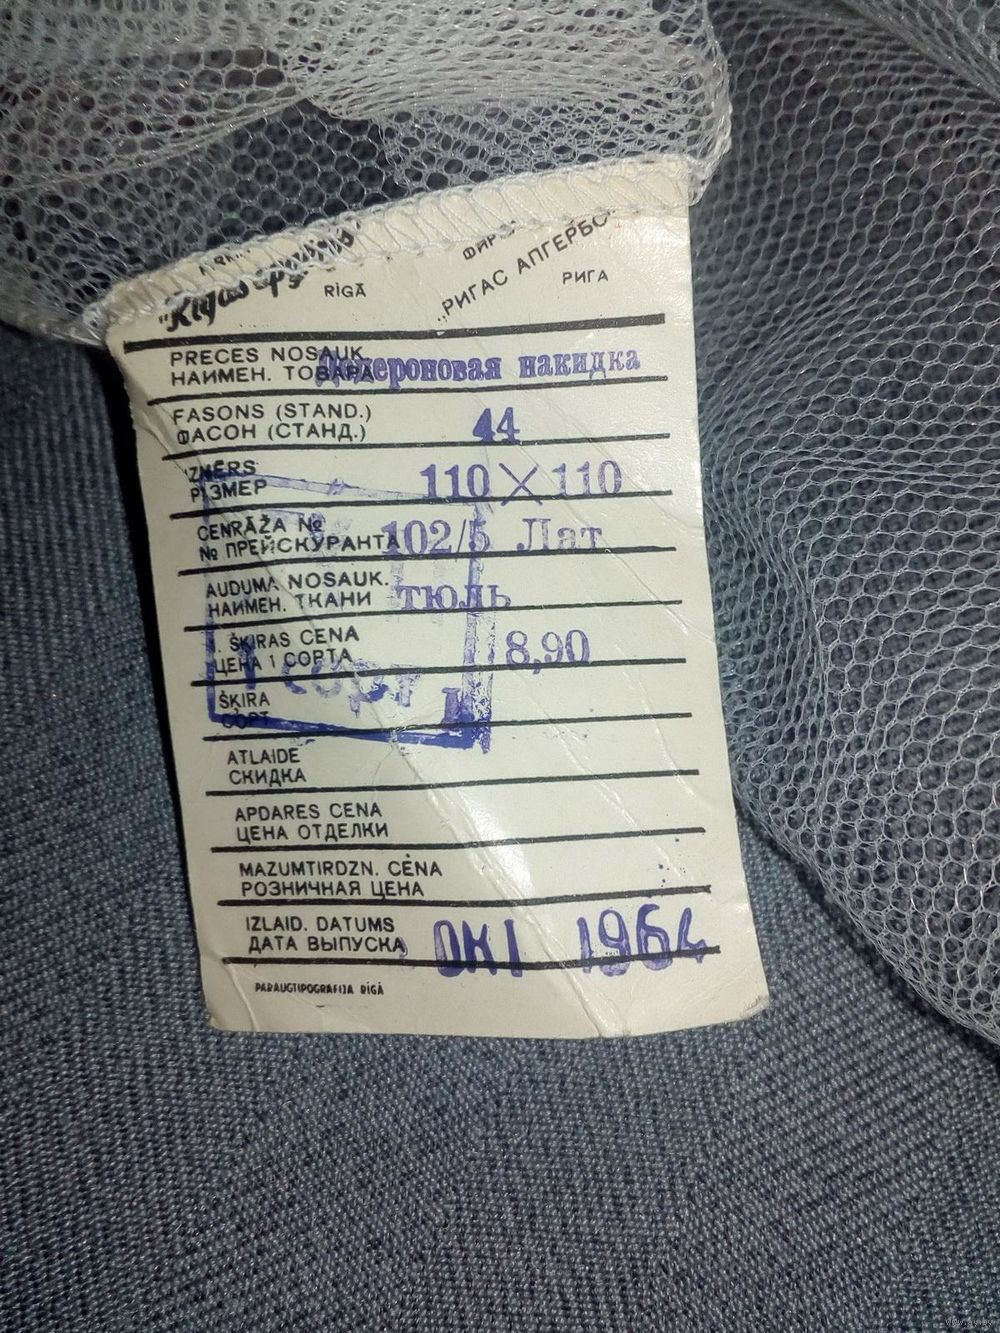 RĪGĀ
„РИГАС АПГЕРБС"
РИГА
PRECES NOSAUK.
НАИМЕН. ТОВАРА
Дедероновая накидка
FASONS (STAND.)
ФАСОН (СТАНД.)
44
IZMĒRS
РАЗМЕР
110 × 110
CENRĀŽA №
№ ПРЕЙСКУРАНТА
102/5 Лат
AUDUMA NOSAUK.
НАИМЕН. ТКАНИ
тюль
I. ŠĶIRAS CENA
ЦЕНА 1 СОРТА
8,90
ŠĶIRA
СОРТ
1 сорт
ATLAIDE
СКИДКА
APDARES CENA
ЦЕНА ОТДЕЛКИ
MAZUMTIRDZN. CENA
РОЗНИЧНАЯ ЦЕНА
IZLAID. DATUMS
ДАТА ВЫПУСКА
ОКТ 1964
PARAUGTIPOGRAFIJA RĪGĀ